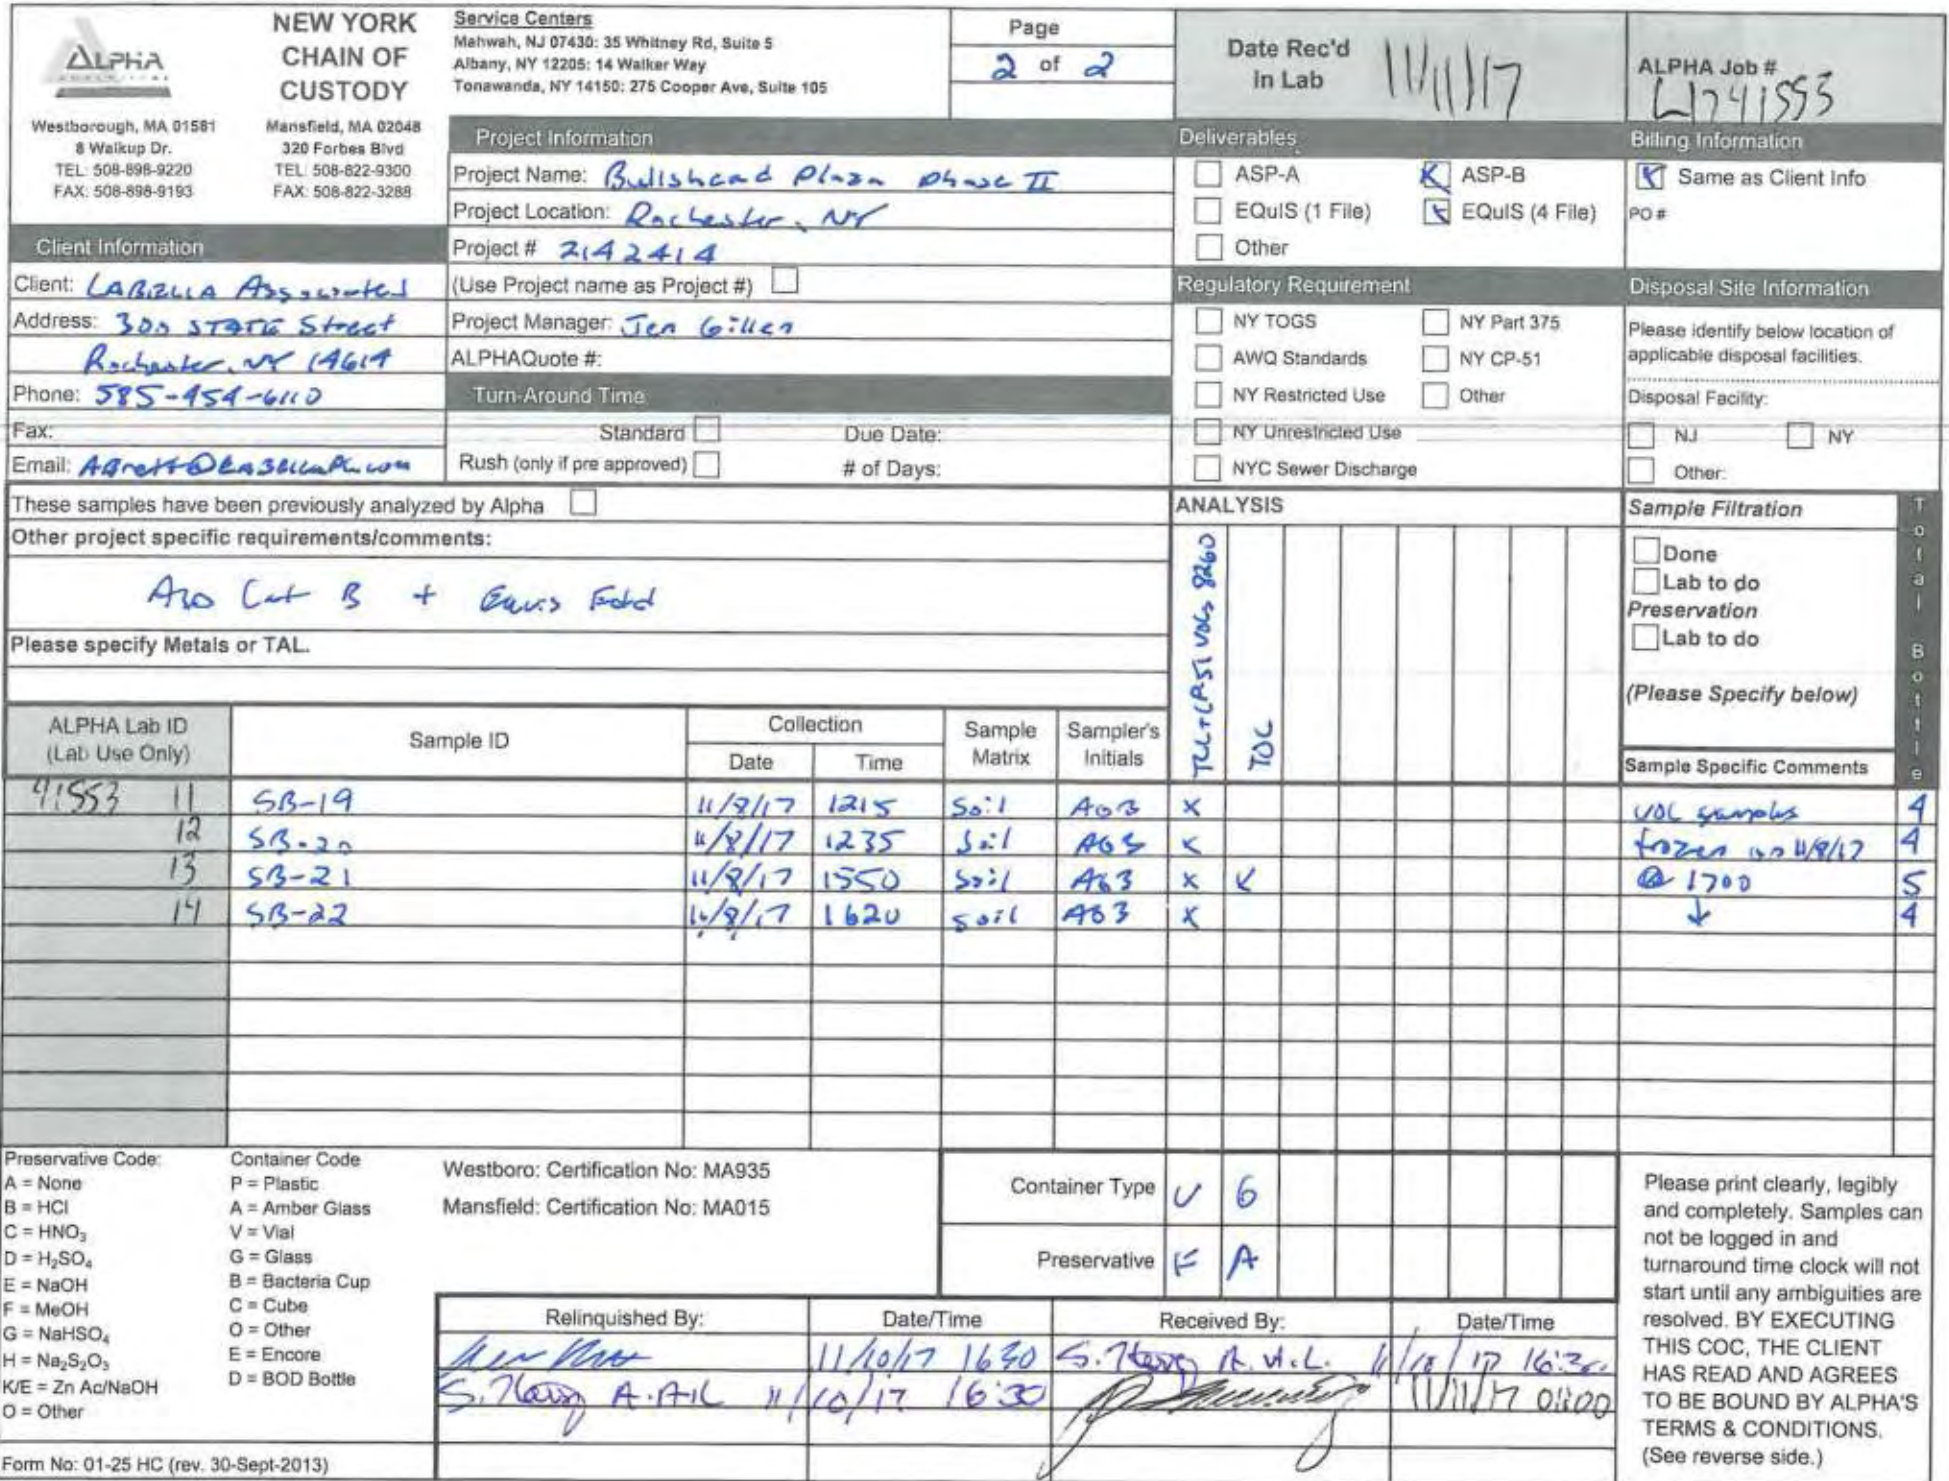 ALPHA
ANALYTICAL
NEW YORK
CHAIN OF
CUSTODY
Westborough, MA 01581
8 Walkup Dr.
TEL: 508-898-9220
FAX: 508-898-9193
Mansfield, MA 02048
320 Forbes Blvd
TEL: 508-822-9300
FAX: 508-822-3288
Service Centers
Mahwah, NJ 07430: 35 Whitney Rd, Suite 5
Albany, NY 12205: 14 Walker Way
Tonawanda, NY 14150: 275 Cooper Ave, Suite 105
Page
2 of 2
Date Rec'd
in Lab
11/11/17
ALPHA Job #
L1741553
Client Information
Client: LABELLA Associated
Address: 300 STATE Street
Rochester, NY 14614
Phone: 585-454-6110
Fax:
Email:
Project Information
Project Name: Bullshead Plaza Phase II
Project Location: Rochester, NY
Project # 2142414
(Use Project name as Project #)
Project Manager: Jen Gillen
ALPHAQuote #:
Turn-Around Time
Standard Due Date:
Rush (only if pre approved) # of Days:
Deliverables
ASP-A ASP-B
EQuIS (1 File) EQuIS (4 File)
Other
Regulatory Requirement
NY TOGS NY Part 375
AWQ Standards NY CP-51
NY Restricted Use Other
NY Unrestricted Use
NYC Sewer Discharge
Billing Information
Same as Client Info
PO #
Disposal Site Information
Please identify below location of
applicable disposal facilities.
Disposal Facility:
NJ NY
Other:
These samples have been previously analyzed by Alpha
Other project specific requirements/comments:
Cat B + Equis Edd
Please specify Metals or TAL.
ANALYSIS
TCL+CP51 VOCs 8260
TOC
Sample Filtration
Done
Lab to do
Preservation
Lab to do
(Please Specify below)
Total Bottle
ALPHA Lab ID
(Lab Use Only)
Sample ID
Collection
Date Time
Sample
Matrix
Sampler's
Initials
Sample Specific Comments
41553 11 SB-19 11/8/17 1215 Soil x VOC samples 4
12 SB-20 11/8/17 1235 Soil x frozen on 11/8/17 4
13 SB-21 11/8/17 1550 Soil x x @ 1700 5
14 SB-22 11/8/17 1620 soil x ↓ 4
Preservative Code:
A = None
B = HCl
C = HNO3
D = H2SO4
E = NaOH
F = MeOH
G = NaHSO4
H = Na2S2O3
K/E = Zn Ac/NaOH
O = Other
Container Code
P = Plastic
A = Amber Glass
V = Vial
G = Glass
B = Bacteria Cup
C = Cube
O = Other
E = Encore
D = BOD Bottle
Westboro: Certification No: MA935
Mansfield: Certification No: MA015
Container Type V G
Preservative F A
Relinquished By: Date/Time Received By: Date/Time
11/10/17 1630 11/10/17 16:30
11/10/17 16:30 11/11/17 01:00
Please print clearly, legibly
and completely. Samples can
not be logged in and
turnaround time clock will not
start until any ambiguities are
resolved. BY EXECUTING
THIS COC, THE CLIENT
HAS READ AND AGREES
TO BE BOUND BY ALPHA'S
TERMS & CONDITIONS.
(See reverse side.)
Form No: 01-25 HC (rev. 30-Sept-2013)